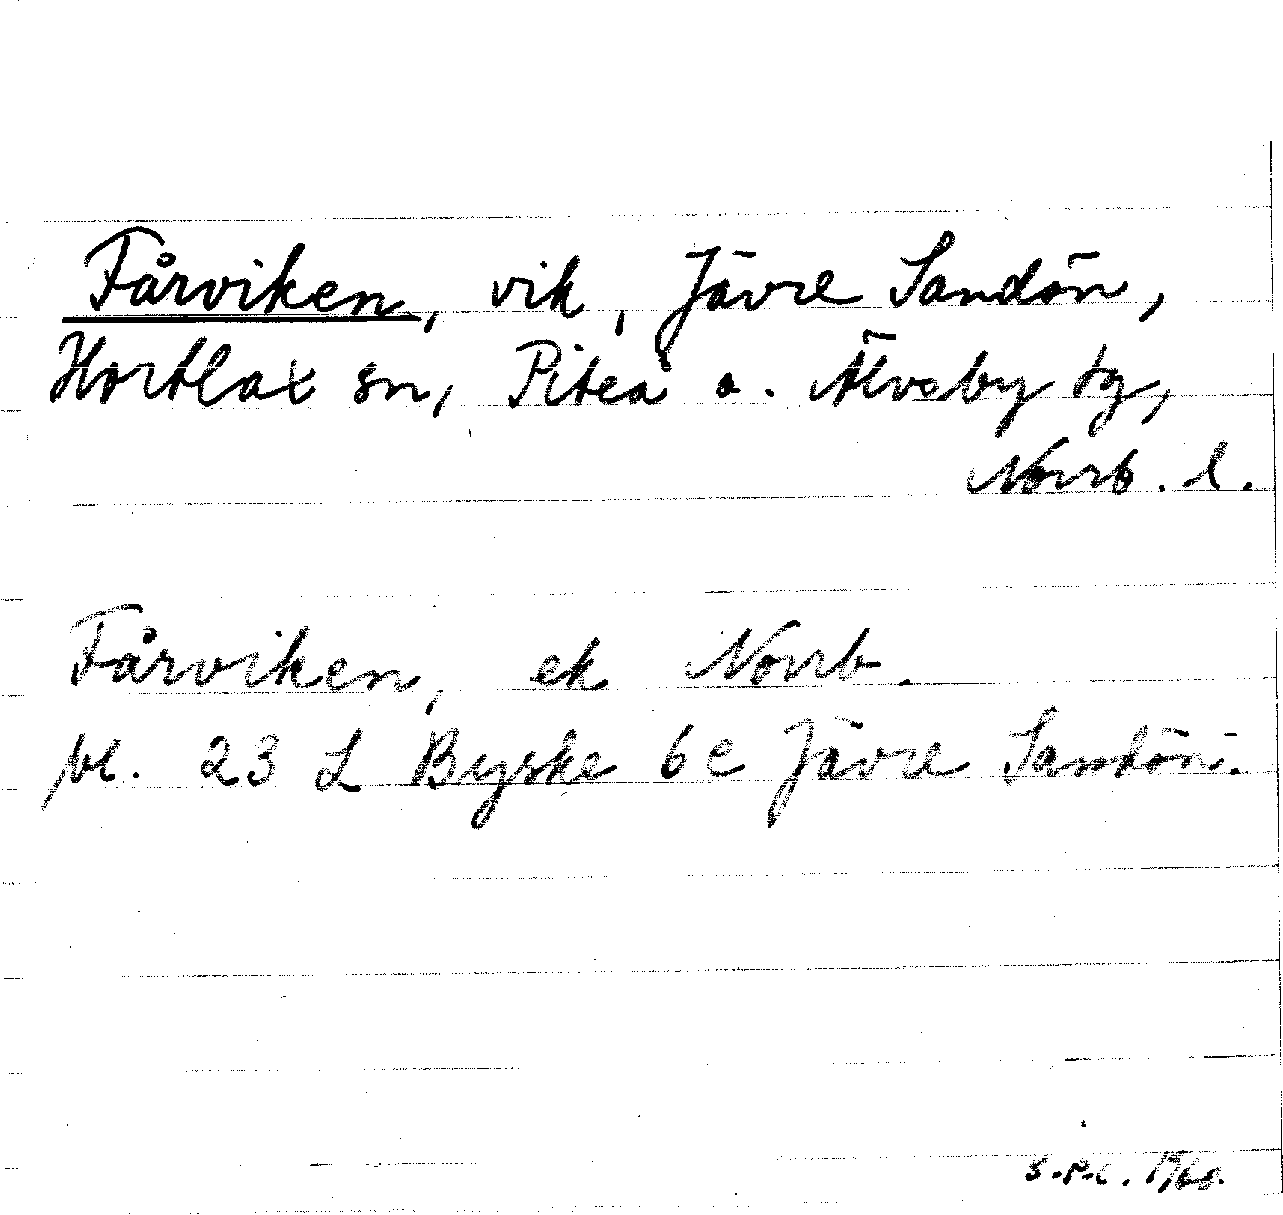 Fårviken, vik, Jävre Sandön,
Hortlax sn, Piteå o. Älvsby tg,
Norrb. l.
Fårviken, ek Norrb.
bl. 23 L Byske 6c Jävre Sandön.